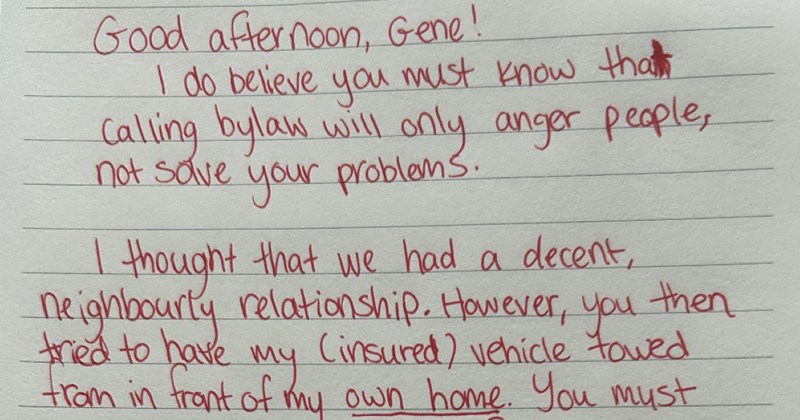 Good afternoon, Gene!
I do believe you must know that
calling bylaw will only anger people,
not solve your problems.
I thought that we had a decent,
neighbourly relationship. However, you then
tried to have my (insured) vehicle towed
from in front of my own home. You must